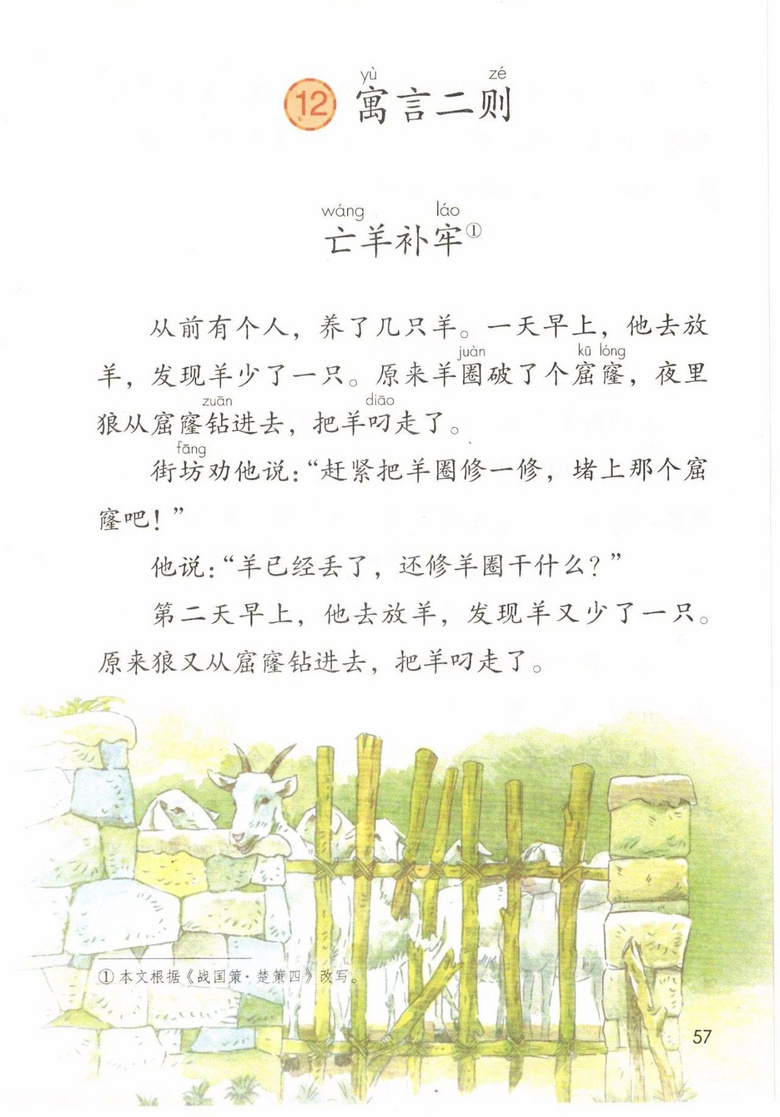 yù zé
12 寓言二则
wáng láo
亡羊补牢①
从前有个人，养了几只羊。一天早上，他去放
juàn kū lóng
羊，发现羊少了一只。原来羊圈破了个窟窿，夜里
zuān diāo
狼从窟窿钻进去，把羊叼走了。
fāng
街坊劝他说：“赶紧把羊圈修一修，堵上那个窟
窿吧！”
他说：“羊已经丢了，还修羊圈干什么？”
第二天早上，他去放羊，发现羊又少了一只。
原来狼又从窟窿钻进去，把羊叼走了。
①本文根据《战国策·楚策四》改写。
57